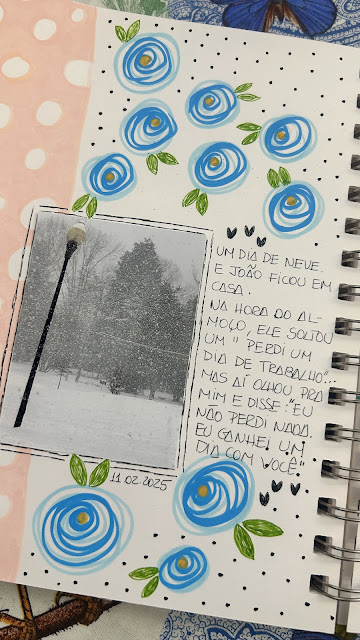 UM DIA DE NEVE.
E JOÃO FICOU EM
CASA.
NA HORA DO AL-
MOÇO, ELE SOLTOU
UM "PERDI UM
DIA DE TRABALHO"...
MAS AÍ OLHOU PRA
MIM E DISSE: "EU
NÃO PERDI NADA.
EU GANHEI UM
DIA COM VOCÊ"
11.02.2025